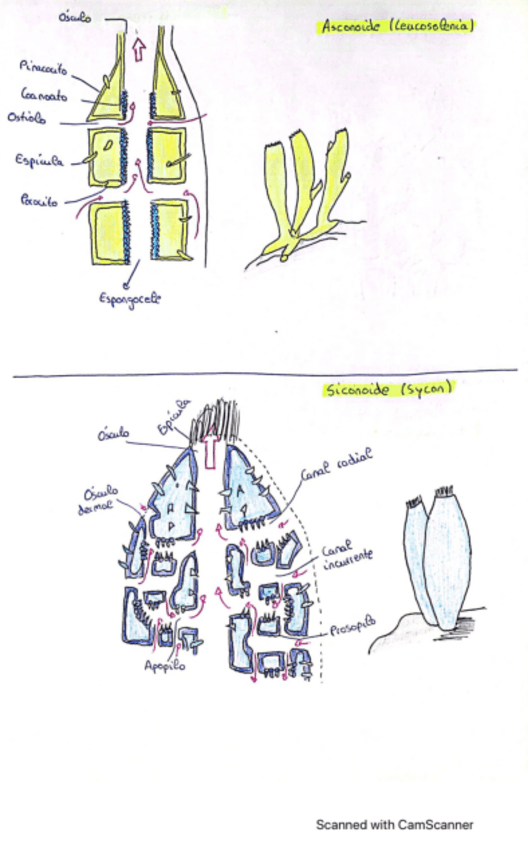 Ósculo
Asconoide (Leucosolenia)
Pinacocito
Coanocito
Ostiolo
Espícula
Porocito
Espongocele
Siconoide (Sycon)
Espícula
Ósculo
Canal radial
Ósculo
dermal
Canal
incurrente
Prosopilo
Apopilo
Scanned with CamScanner